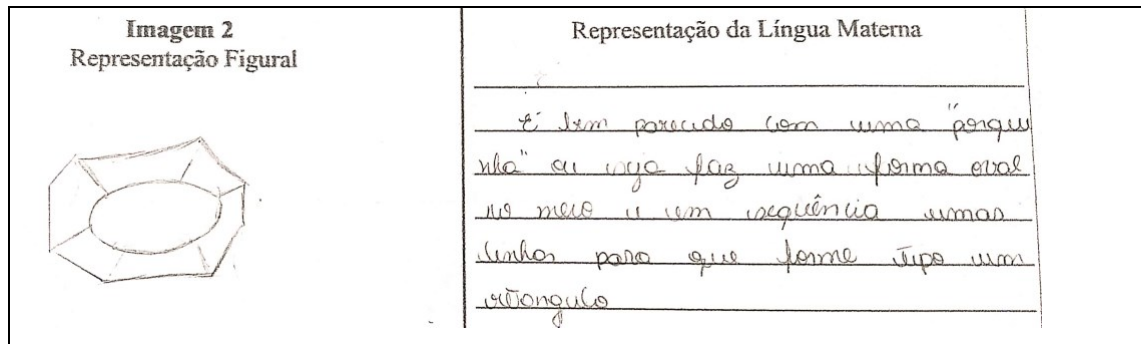 Imagem 2
Representação Figural
Representação da Língua Materna
É bem parecido com uma "porqui
nha" ou seja faz uma forma oval
no meio e em sequência umas
linhas para que forme tipo um
retângulo